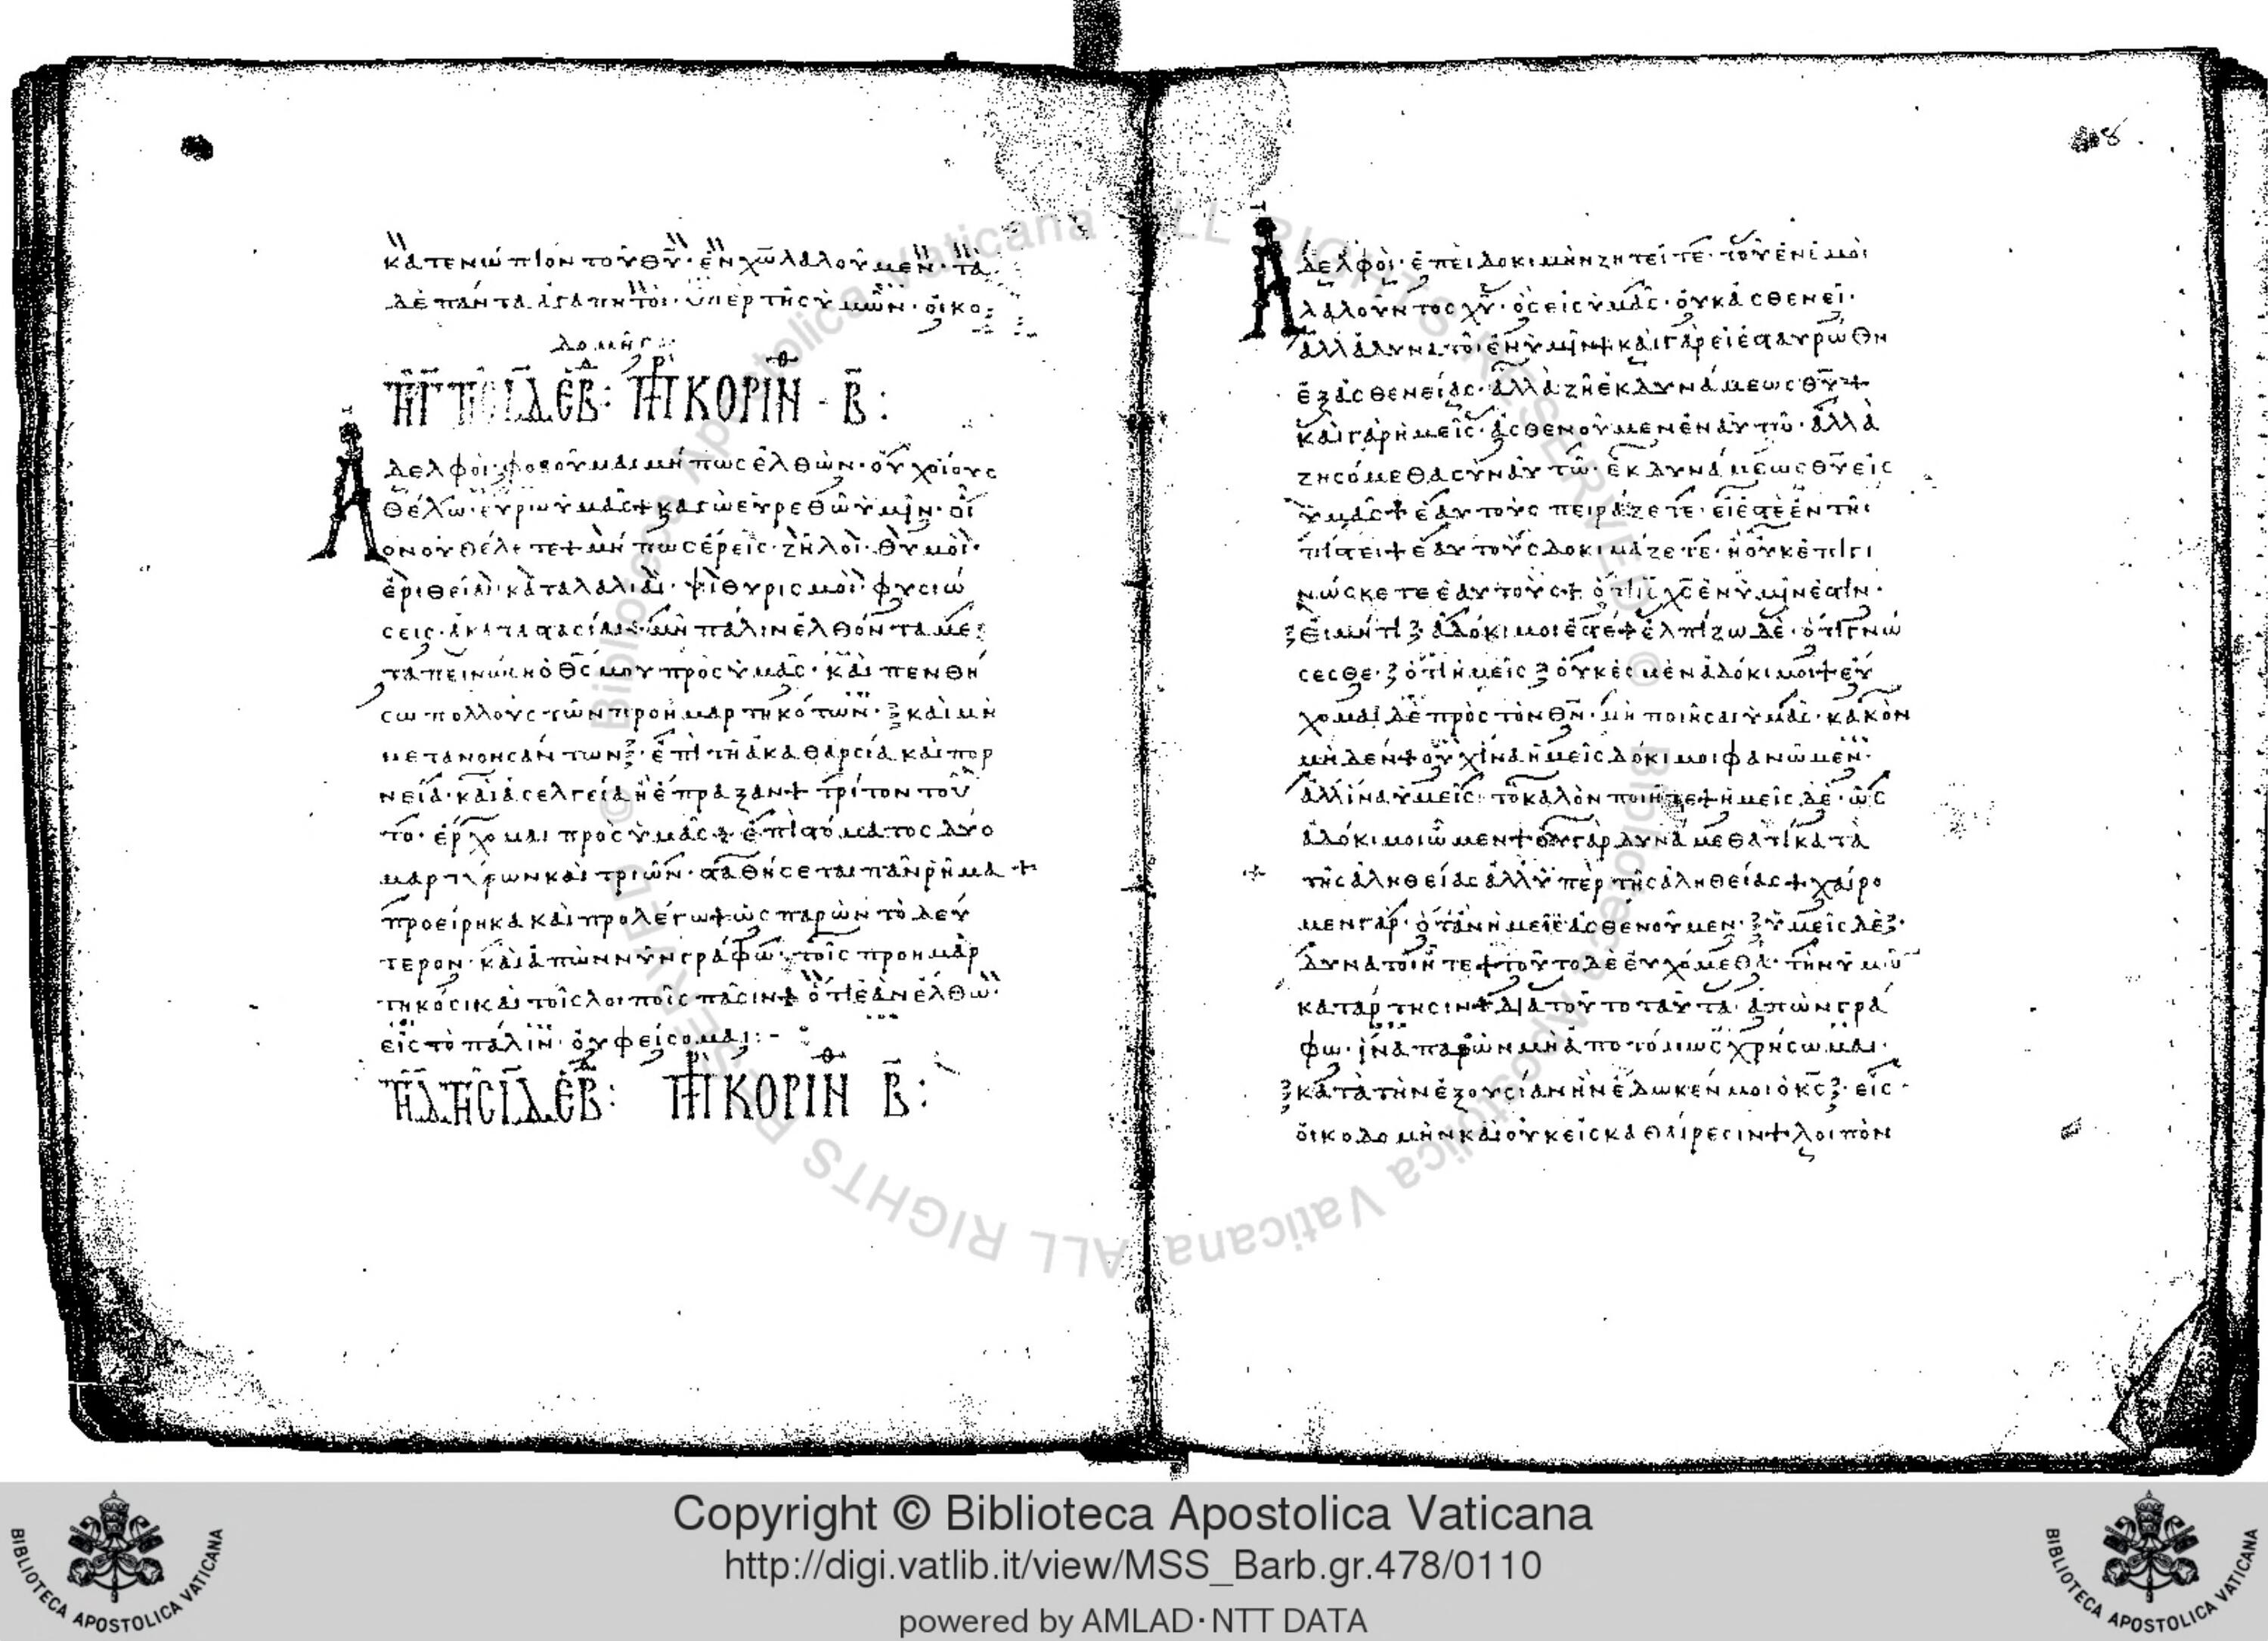 κατενώπιον τοῦ θῦ· ἐν χῶ λαλοῦμεν· τὰ
δὲ πάντα ἀγαπητοὶ· ὑπὲρ τῆς ὑμῶν· οἰκο
δομῆς
ΚΟΡΙΝΘ Β:
Ἀδελφοὶ· φοβοῦμαι μήπως ἐλθὼν· οὐχ οἵους
θέλω· εὕρω ὑμᾶς + κἀγὼ εὑρεθῶ ὑμῖν· οἷ
ον οὐ θέλετε + μήπως ἔρεις· ζῆλοι· θυμοὶ·
ἐριθεῖαι· καταλαλιαὶ· ψιθυρισμοὶ· φυσιώ
σεις· ἀκαταστασίαι· μὴ πάλιν ἐλθόντα με
ταπεινώσῃ ὁ θς μου πρὸς ὑμᾶς· καὶ πενθή
σω πολλοὺς τῶν προημαρτηκότων· καὶ μὴ
μετανοησάντων· ἐπὶ τῆ ἀκαθαρσία καὶ πορ
νεία· καὶ ἀσελγεία ἧ ἔπραξαν + τρίτον τοῦ
το· ἔρχομαι πρὸς ὑμᾶς + ἐπὶ στόματος δύο
μαρτύρων καὶ τριῶν· σταθήσεται πᾶν ῥῆμα +
προείρηκα καὶ προλέγω + ὡς παρὼν τὸ δεύ
τερον· καὶ ἀπὼν νῦν γράφω· τοῖς προημαρ
τηκόσι καὶ τοῖς λοιποῖς πᾶσιν + ὅτι ἐὰν ἔλθω·
εἰς τὸ πάλιν· οὐ φείσομαι:-
ΚΟΡΙΝΘ Β:
Ἀδελφοὶ· ἐπεὶ δοκιμὴν ζητεῖτε· τοῦ ἐν ἐμοὶ
λαλοῦντος χῦ· ὃς εἰς ὑμᾶς· οὐκ ἀσθενεῖ·
ἀλλὰ δυνατεῖ ἐν ὑμῖν + καὶ γὰρ εἰ ἐσταυρώθη
ἐξ ἀσθενείας· ἀλλὰ ζῆ ἐκ δυνάμεως θῦ +
καὶ γὰρ ἡμεῖς· ἀσθενοῦμεν ἐν αὐτῶ· ἀλλὰ
ζησόμεθα σὺν αὐτῶ· ἐκ δυνάμεως θῦ εἰς
ὑμᾶς + ἑαυτοὺς πειράζετε· εἰ ἐστὲ ἐν τῆ
πίστει + ἑαυτοὺς δοκιμάζετε· ἢ οὐκ ἐπιγι
νώσκετε ἑαυτοὺς + ὅτι ις χς ἐν ὑμῖν ἐστὶν·
εἰ μή τι ἀδόκιμοι ἐστέ + ἐλπίζω δὲ· ὅτι γνώ
σεσθε· ὅτι ἡμεῖς οὐκ ἐσμὲν ἀδόκιμοι + εὔ
χομαι δὲ πρὸς τὸν θν· μὴ ποιῆσαι ὑμᾶς· κακὸν
μηδέν + οὐχ ἵνα ἡμεῖς δόκιμοι φανῶμεν·
ἀλλ ἵνα ὑμεῖς· τὸ καλὸν ποιῆτε + ἡμεῖς δὲ· ὡς
ἀδόκιμοι ὦμεν + οὐ γὰρ δυνάμεθά τι κατὰ
τῆς ἀληθείας ἀλλ ὑπὲρ τῆς ἀληθείας + χαίρο
μεν γὰρ· ὅταν ἡμεῖς ἀσθενοῦμεν· ὑμεῖς δὲ·
δυνατοὶ ἦτε + τοῦτο δὲ εὐχόμεθα· τὴν ὑμῶ
κατάρτησιν + διὰ τοῦτο ταῦτα· ἀπὼν γρά
φω· ἵνα παρὼν μὴ ἀποτόμως χρήσωμαι·
κατὰ τὴν ἐξουσίαν ἣν ἔδωκέν μοι ὁ κς· εἰς
οἰκοδομὴν καὶ οὐκ εἰς καθαίρεσιν + λοιπὸν
Copyright © Biblioteca Apostolica Vaticana
http://digi.vatlib.it/view/MSS_Barb.gr.478/0110
powered by AMLAD·NTT DATA
BIBLIOTECA APOSTOLICA VATICANA
BIBLIOTECA APOSTOLICA VATICANA